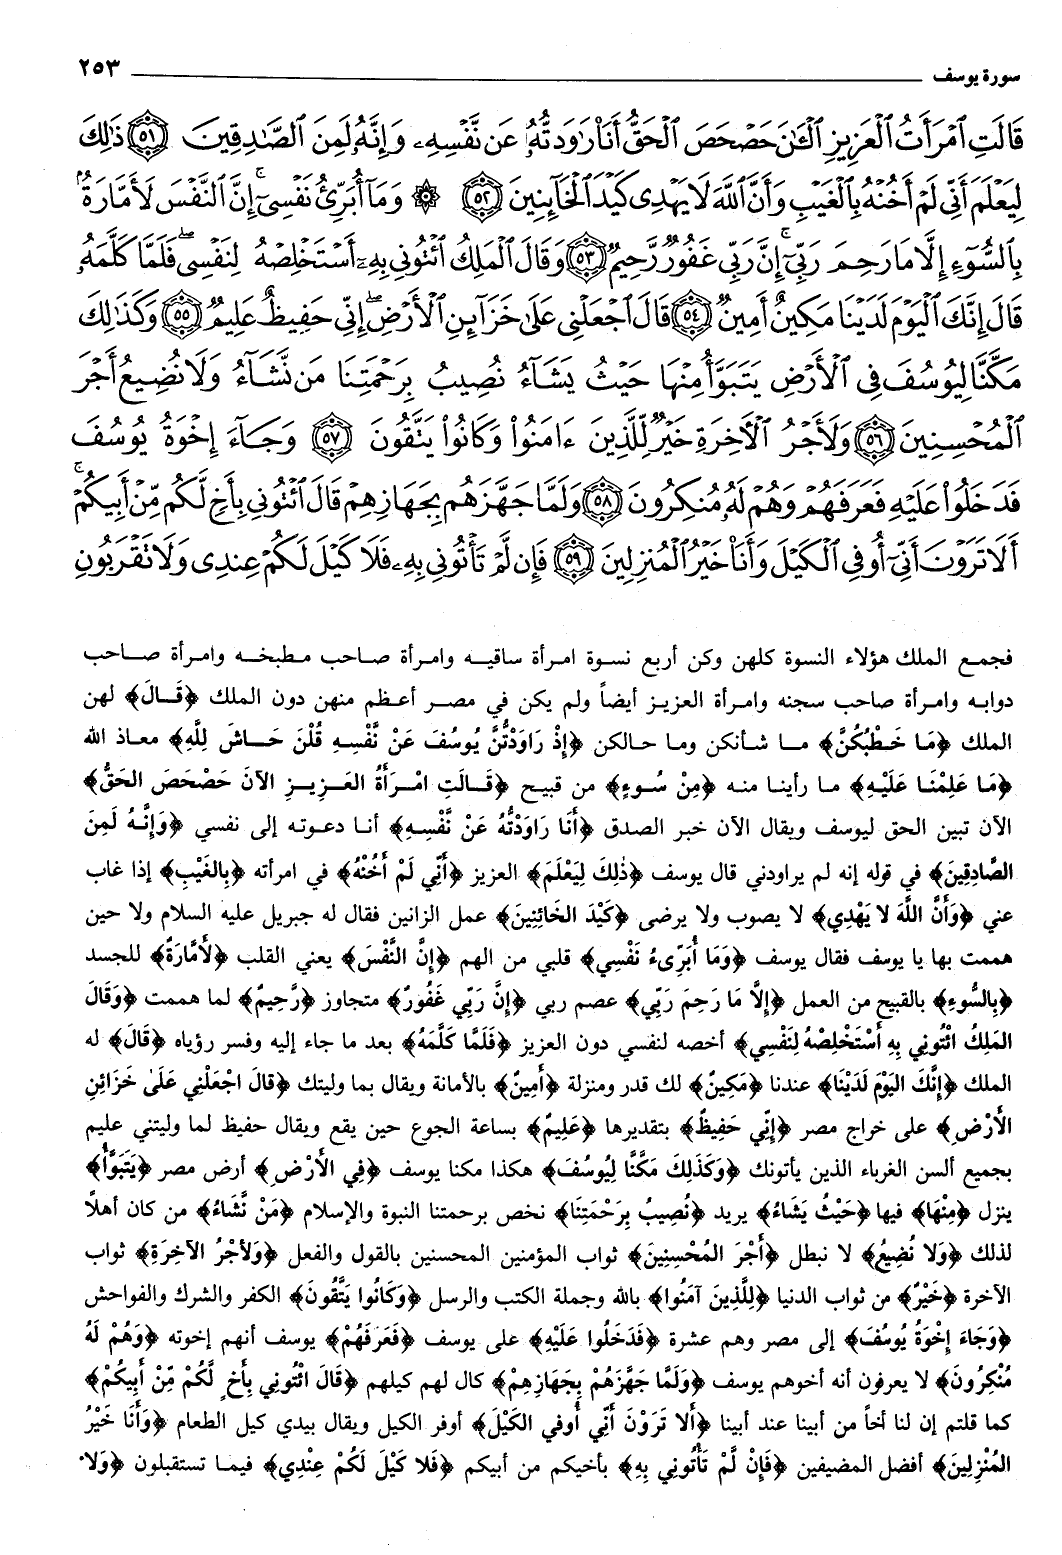 سورة يوسف ٢٥٣
قَالَتِ ٱمْرَأَتُ ٱلْعَزِيزِ ٱلْـَٰٔنَ حَصْحَصَ ٱلْحَقُّ أَنَا۠ رَٰوَدتُّهُۥ عَن نَّفْسِهِۦ وَإِنَّهُۥ لَمِنَ ٱلصَّٰدِقِينَ ﴿٥١﴾ ذَٰلِكَ
لِيَعْلَمَ أَنِّى لَمْ أَخُنْهُ بِٱلْغَيْبِ وَأَنَّ ٱللَّهَ لَا يَهْدِى كَيْدَ ٱلْخَآئِنِينَ ﴿٥٢﴾ ۞ وَمَآ أُبَرِّئُ نَفْسِىٓ ۚ إِنَّ ٱلنَّفْسَ لَأَمَّارَةٌۢ
بِٱلسُّوٓءِ إِلَّا مَا رَحِمَ رَبِّىٓ ۚ إِنَّ رَبِّى غَفُورٌ رَّحِيمٌ ﴿٥٣﴾ وَقَالَ ٱلْمَلِكُ ٱئْتُونِى بِهِۦٓ أَسْتَخْلِصْهُ لِنَفْسِى ۖ فَلَمَّا كَلَّمَهُۥ
قَالَ إِنَّكَ ٱلْيَوْمَ لَدَيْنَا مَكِينٌ أَمِينٌ ﴿٥٤﴾ قَالَ ٱجْعَلْنِى عَلَىٰ خَزَآئِنِ ٱلْأَرْضِ ۖ إِنِّى حَفِيظٌ عَلِيمٌ ﴿٥٥﴾ وَكَذَٰلِكَ
مَكَّنَّا لِيُوسُفَ فِى ٱلْأَرْضِ يَتَبَوَّأُ مِنْهَا حَيْثُ يَشَآءُ ۚ نُصِيبُ بِرَحْمَتِنَا مَن نَّشَآءُ ۖ وَلَا نُضِيعُ أَجْرَ
ٱلْمُحْسِنِينَ ﴿٥٦﴾ وَلَأَجْرُ ٱلْـَٔاخِرَةِ خَيْرٌ لِّلَّذِينَ ءَامَنُوا۟ وَكَانُوا۟ يَتَّقُونَ ﴿٥٧﴾ وَجَآءَ إِخْوَةُ يُوسُفَ
فَدَخَلُوا۟ عَلَيْهِ فَعَرَفَهُمْ وَهُمْ لَهُۥ مُنكِرُونَ ﴿٥٨﴾ وَلَمَّا جَهَّزَهُم بِجَهَازِهِمْ قَالَ ٱئْتُونِى بِأَخٍ لَّكُم مِّنْ أَبِيكُمْ ۚ
أَلَا تَرَوْنَ أَنِّىٓ أُوفِى ٱلْكَيْلَ وَأَنَا۠ خَيْرُ ٱلْمُنزِلِينَ ﴿٥٩﴾ فَإِن لَّمْ تَأْتُونِى بِهِۦ فَلَا كَيْلَ لَكُمْ عِندِى وَلَا تَقْرَبُونِ
فجمع الملك هؤلاء النسوة كلهن وكن أربع نسوة امرأة ساقيه وامرأة صاحب مطبخه وامرأة صاحب
دوابه وامرأة صاحب سجنه وامرأة العزيز أيضاً ولم يكن في مصر أعظم منهن دون الملك ﴿قَالَ﴾ لهن
الملك ﴿مَا خَطْبُكُنَّ﴾ ما شأنكن وما حالكن ﴿إِذْ رَاوَدْتُّنَّ يُوسُفَ عَنْ نَّفْسِهِ قُلْنَ حَاشَ لِلَّهِ﴾ معاذ الله
﴿مَا عَلِمْنَا عَلَيْهِ﴾ ما رأينا منه ﴿مِنْ سُوءٍ﴾ من قبيح ﴿قَالَتِ امْرَأَةُ العَزِيزِ الآنَ حَصْحَصَ الحَقُّ﴾
الآن تبين الحق ليوسف ويقال الآن خبر الصدق ﴿أَنَا رَاوَدْتُّهُ عَنْ نَّفْسِهِ﴾ أنا دعوته إلى نفسي ﴿وَإِنَّهُ لَمِنَ
الصَّادِقِينَ﴾ في قوله إنه لم يراودني قال يوسف ﴿ذٰلِكَ لِيَعْلَمَ﴾ العزيز ﴿أَنِّي لَمْ أَخُنْهُ﴾ في امرأته ﴿بِالغَيْبِ﴾ إذا غاب
عني ﴿وَأَنَّ اللَّهَ لا يَهْدِي﴾ لا يصوب ولا يرضى ﴿كَيْدَ الخَائِنِينَ﴾ عمل الزانين فقال له جبريل عليه السلام ولا حين
هممت بها يا يوسف فقال يوسف ﴿وَمَا أُبَرِّىءُ نَفْسِي﴾ قلبي من الهم ﴿إِنَّ النَّفْسَ﴾ يعني القلب ﴿لأَمَّارَةٌ﴾ للجسد
﴿بِالسُّوءِ﴾ بالقبيح من العمل ﴿إِلَّا مَا رَحِمَ رَبِّي﴾ عصم ربي ﴿إِنَّ رَبِّي غَفُورٌ﴾ متجاوز ﴿رَّحِيمٌ﴾ لما هممت ﴿وَقَالَ
المَلِكُ ائْتُونِي بِهِ أَسْتَخْلِصْهُ لِنَفْسِي﴾ أخصه لنفسي دون العزيز ﴿فَلَمَّا كَلَّمَهُ﴾ بعد ما جاء إليه وفسر رؤياه ﴿قَالَ﴾ له
الملك ﴿إِنَّكَ اليَوْمَ لَدَيْنَا﴾ عندنا ﴿مَكِينٌ﴾ لك قدر ومنزلة ﴿أَمِينٌ﴾ بالأمانة ويقال بما وليتك ﴿قَالَ اجْعَلْنِي عَلَىٰ خَزَائِنِ
الأَرْضِ﴾ على خراج مصر ﴿إِنِّي حَفِيظٌ﴾ بتقديرها ﴿عَلِيمٌ﴾ بساعة الجوع حين يقع ويقال حفيظ لما وليتني عليم
بجميع ألسن الغرباء الذين يأتونك ﴿وَكَذَلِكَ مَكَّنَّا لِيُوسُفَ﴾ هكذا مكنا يوسف ﴿فِي الأَرْضِ﴾ أرض مصر ﴿يَتَبَوَّأُ﴾
ينزل ﴿مِنْهَا﴾ فيها ﴿حَيْثُ يَشَاءُ﴾ يريد ﴿نُصِيبُ بِرَحْمَتِنَا﴾ نخص برحمتنا النبوة والإسلام ﴿مَنْ نَّشَاءُ﴾ من كان أهلاً
لذلك ﴿وَلا نُضِيعُ﴾ لا نبطل ﴿أَجْرَ المُحْسِنِينَ﴾ ثواب المؤمنين المحسنين بالقول والفعل ﴿وَلأَجْرُ الآخِرَةِ﴾ ثواب
الآخرة ﴿خَيْرٌ﴾ من ثواب الدنيا ﴿لِلَّذِينَ آمَنُوا﴾ بالله وجملة الكتب والرسل ﴿وَكَانُوا يَتَّقُونَ﴾ الكفر والشرك والفواحش
﴿وَجَاءَ إِخْوَةُ يُوسُفَ﴾ إلى مصر وهم عشرة ﴿فَدَخَلُوا عَلَيْهِ﴾ على يوسف ﴿فَعَرَفَهُمْ﴾ يوسف أنهم إخوته ﴿وَهُمْ لَهُ
مُنْكِرُونَ﴾ لا يعرفون أنه أخوهم يوسف ﴿وَلَمَّا جَهَّزَهُمْ بِجَهَازِهِمْ﴾ كال لهم كيلهم ﴿قَالَ ائْتُونِي بِأَخٍ لَّكُمْ مِّنْ أَبِيكُمْ﴾
كما قلتم إن لنا أخاً من أبينا عند أبينا ﴿أَلا تَرَوْنَ أَنِّي أُوفي الكَيْلَ﴾ أوفر الكيل ويقال بيدي كيل الطعام ﴿وَأَنَا خَيْرُ
المُنْزِلِينَ﴾ أفضل المضيفين ﴿فَإِنْ لَّمْ تَأْتُونِي بِهِ﴾ بأخيكم من أبيكم ﴿فَلا كَيْلَ لَكُمْ عِنْدِي﴾ فيما تستقبلون ﴿وَلا